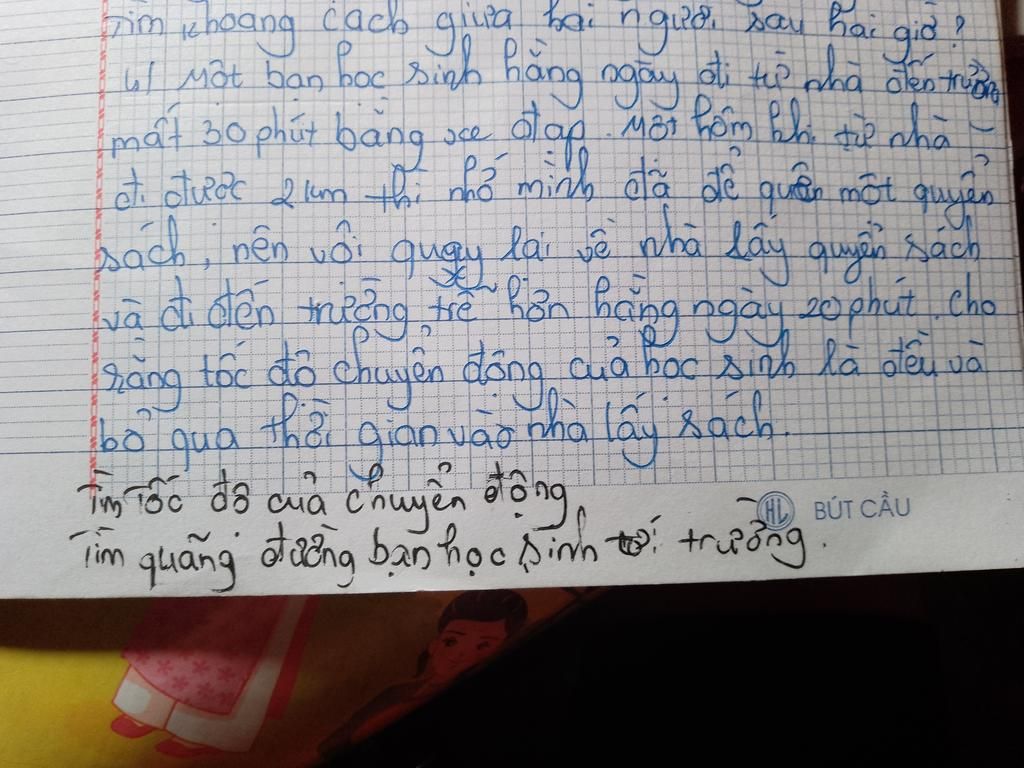 Tìm khoảng cách giữa hai người sau hai giờ?
4/ Một bạn học sinh hằng ngày đi từ nhà đến trường
mất 30 phút bằng xe đạp. Một hôm khi từ nhà
đi được 2 km thì nhớ mình đã để quên một quyển
sách, nên vội quay lại về nhà lấy quyển sách
và đi đến trường trễ hơn hằng ngày 20 phút. Cho
rằng tốc độ chuyển động của học sinh là đều và
bỏ qua thời gian vào nhà lấy sách.
Tìm tốc độ của chuyển động
Tìm quãng đường bạn học sinh tới trường.
HL BÚT CẦU